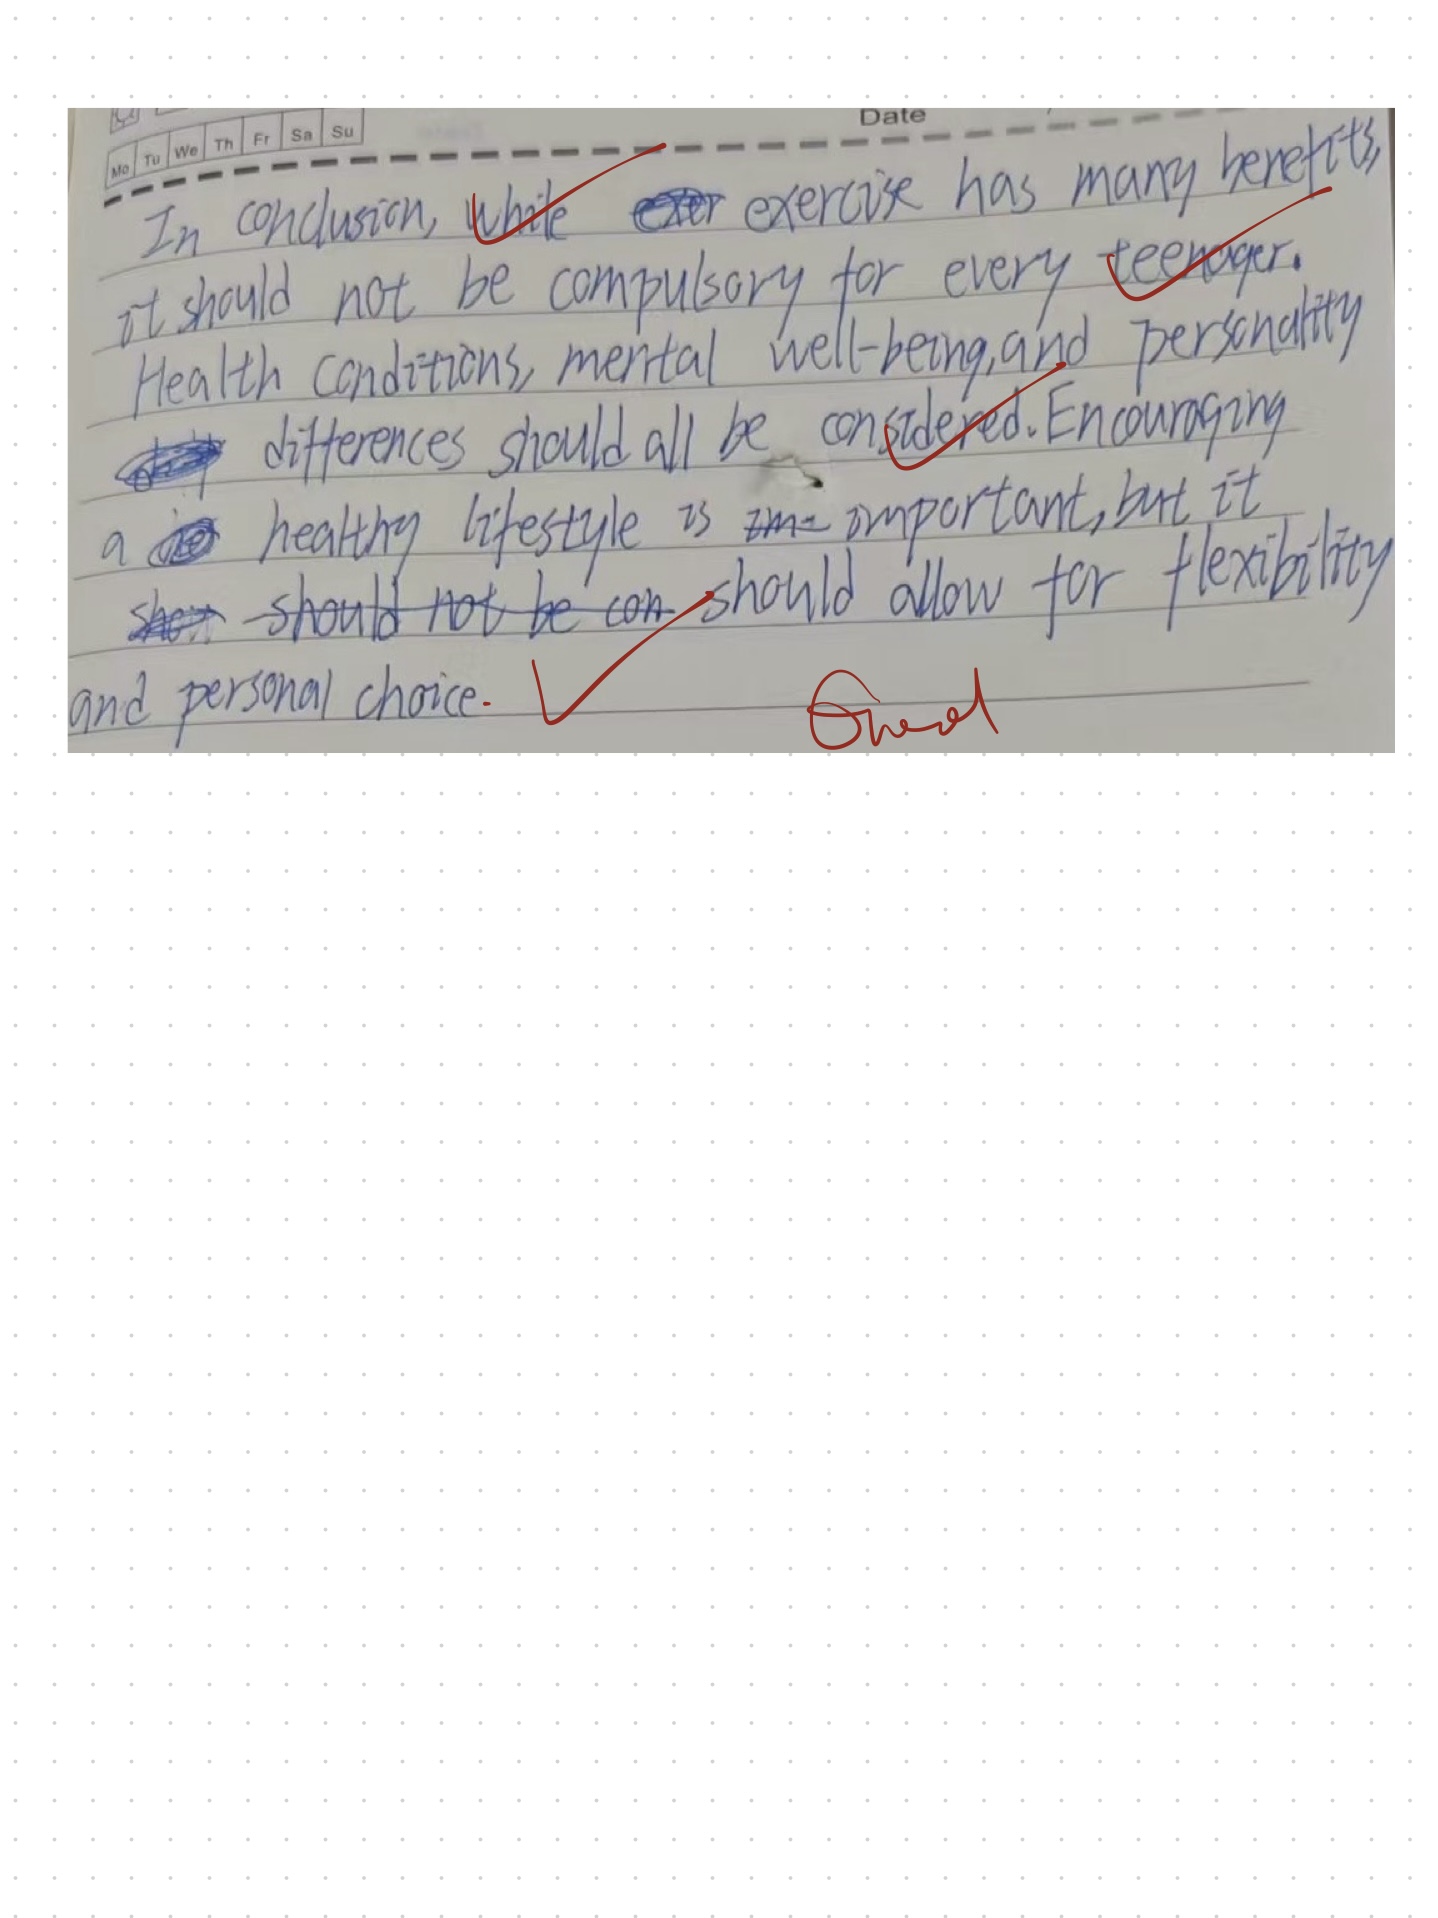 Mo Tu We Th Fr Sa Su
Date
In conclusion, while exercise has many benefits,
it should not be compulsory for every teenager.
Health conditions, mental well-being, and personality
differences should all be considered. Encouraging
a healthy lifestyle is im- important, but it
should not be con should allow for flexibility
and personal choice.